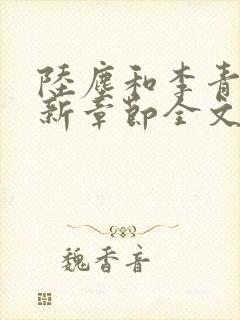 陸塵和李青
新章節全文
魏香音